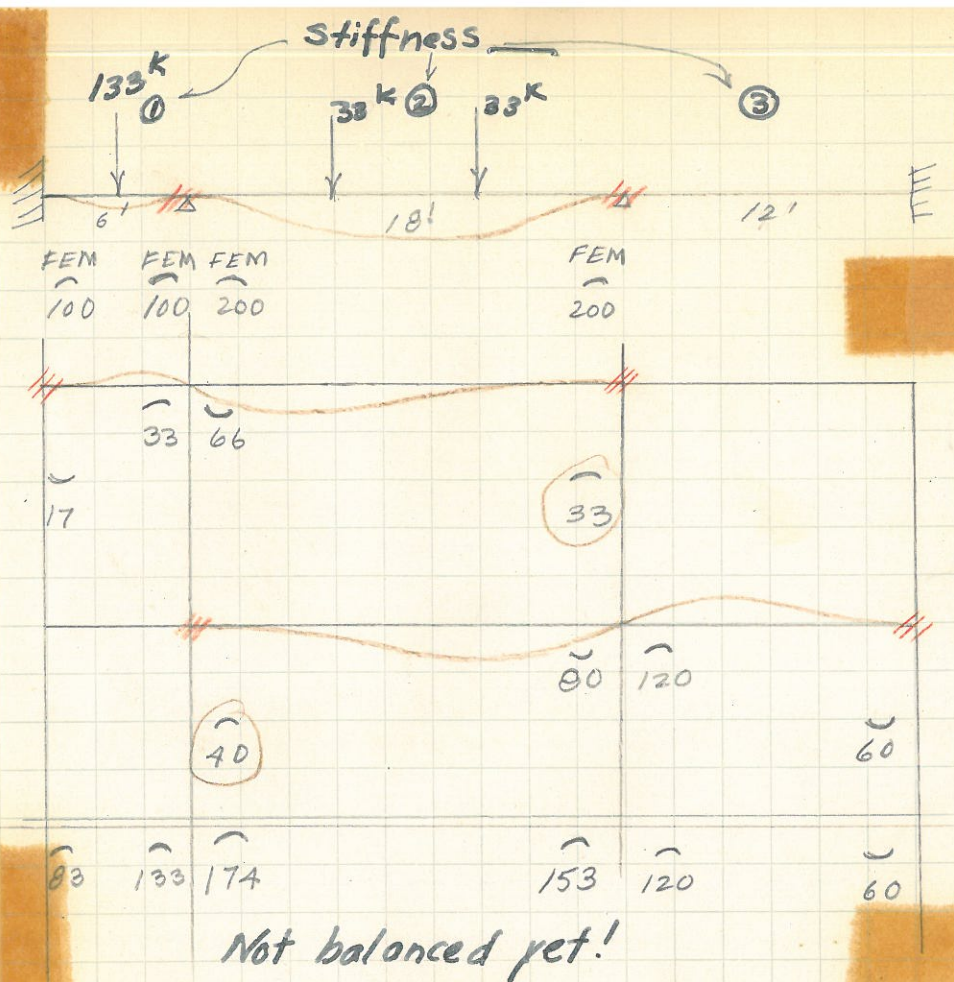 Stiffness
133K ① 33K ② 33K ③
6' 18' 12'
FEM FEM FEM FEM
100 100 200 200
33 66
17 33
80 120
40 60
83 133 174 153 120 60
Not balanced yet!